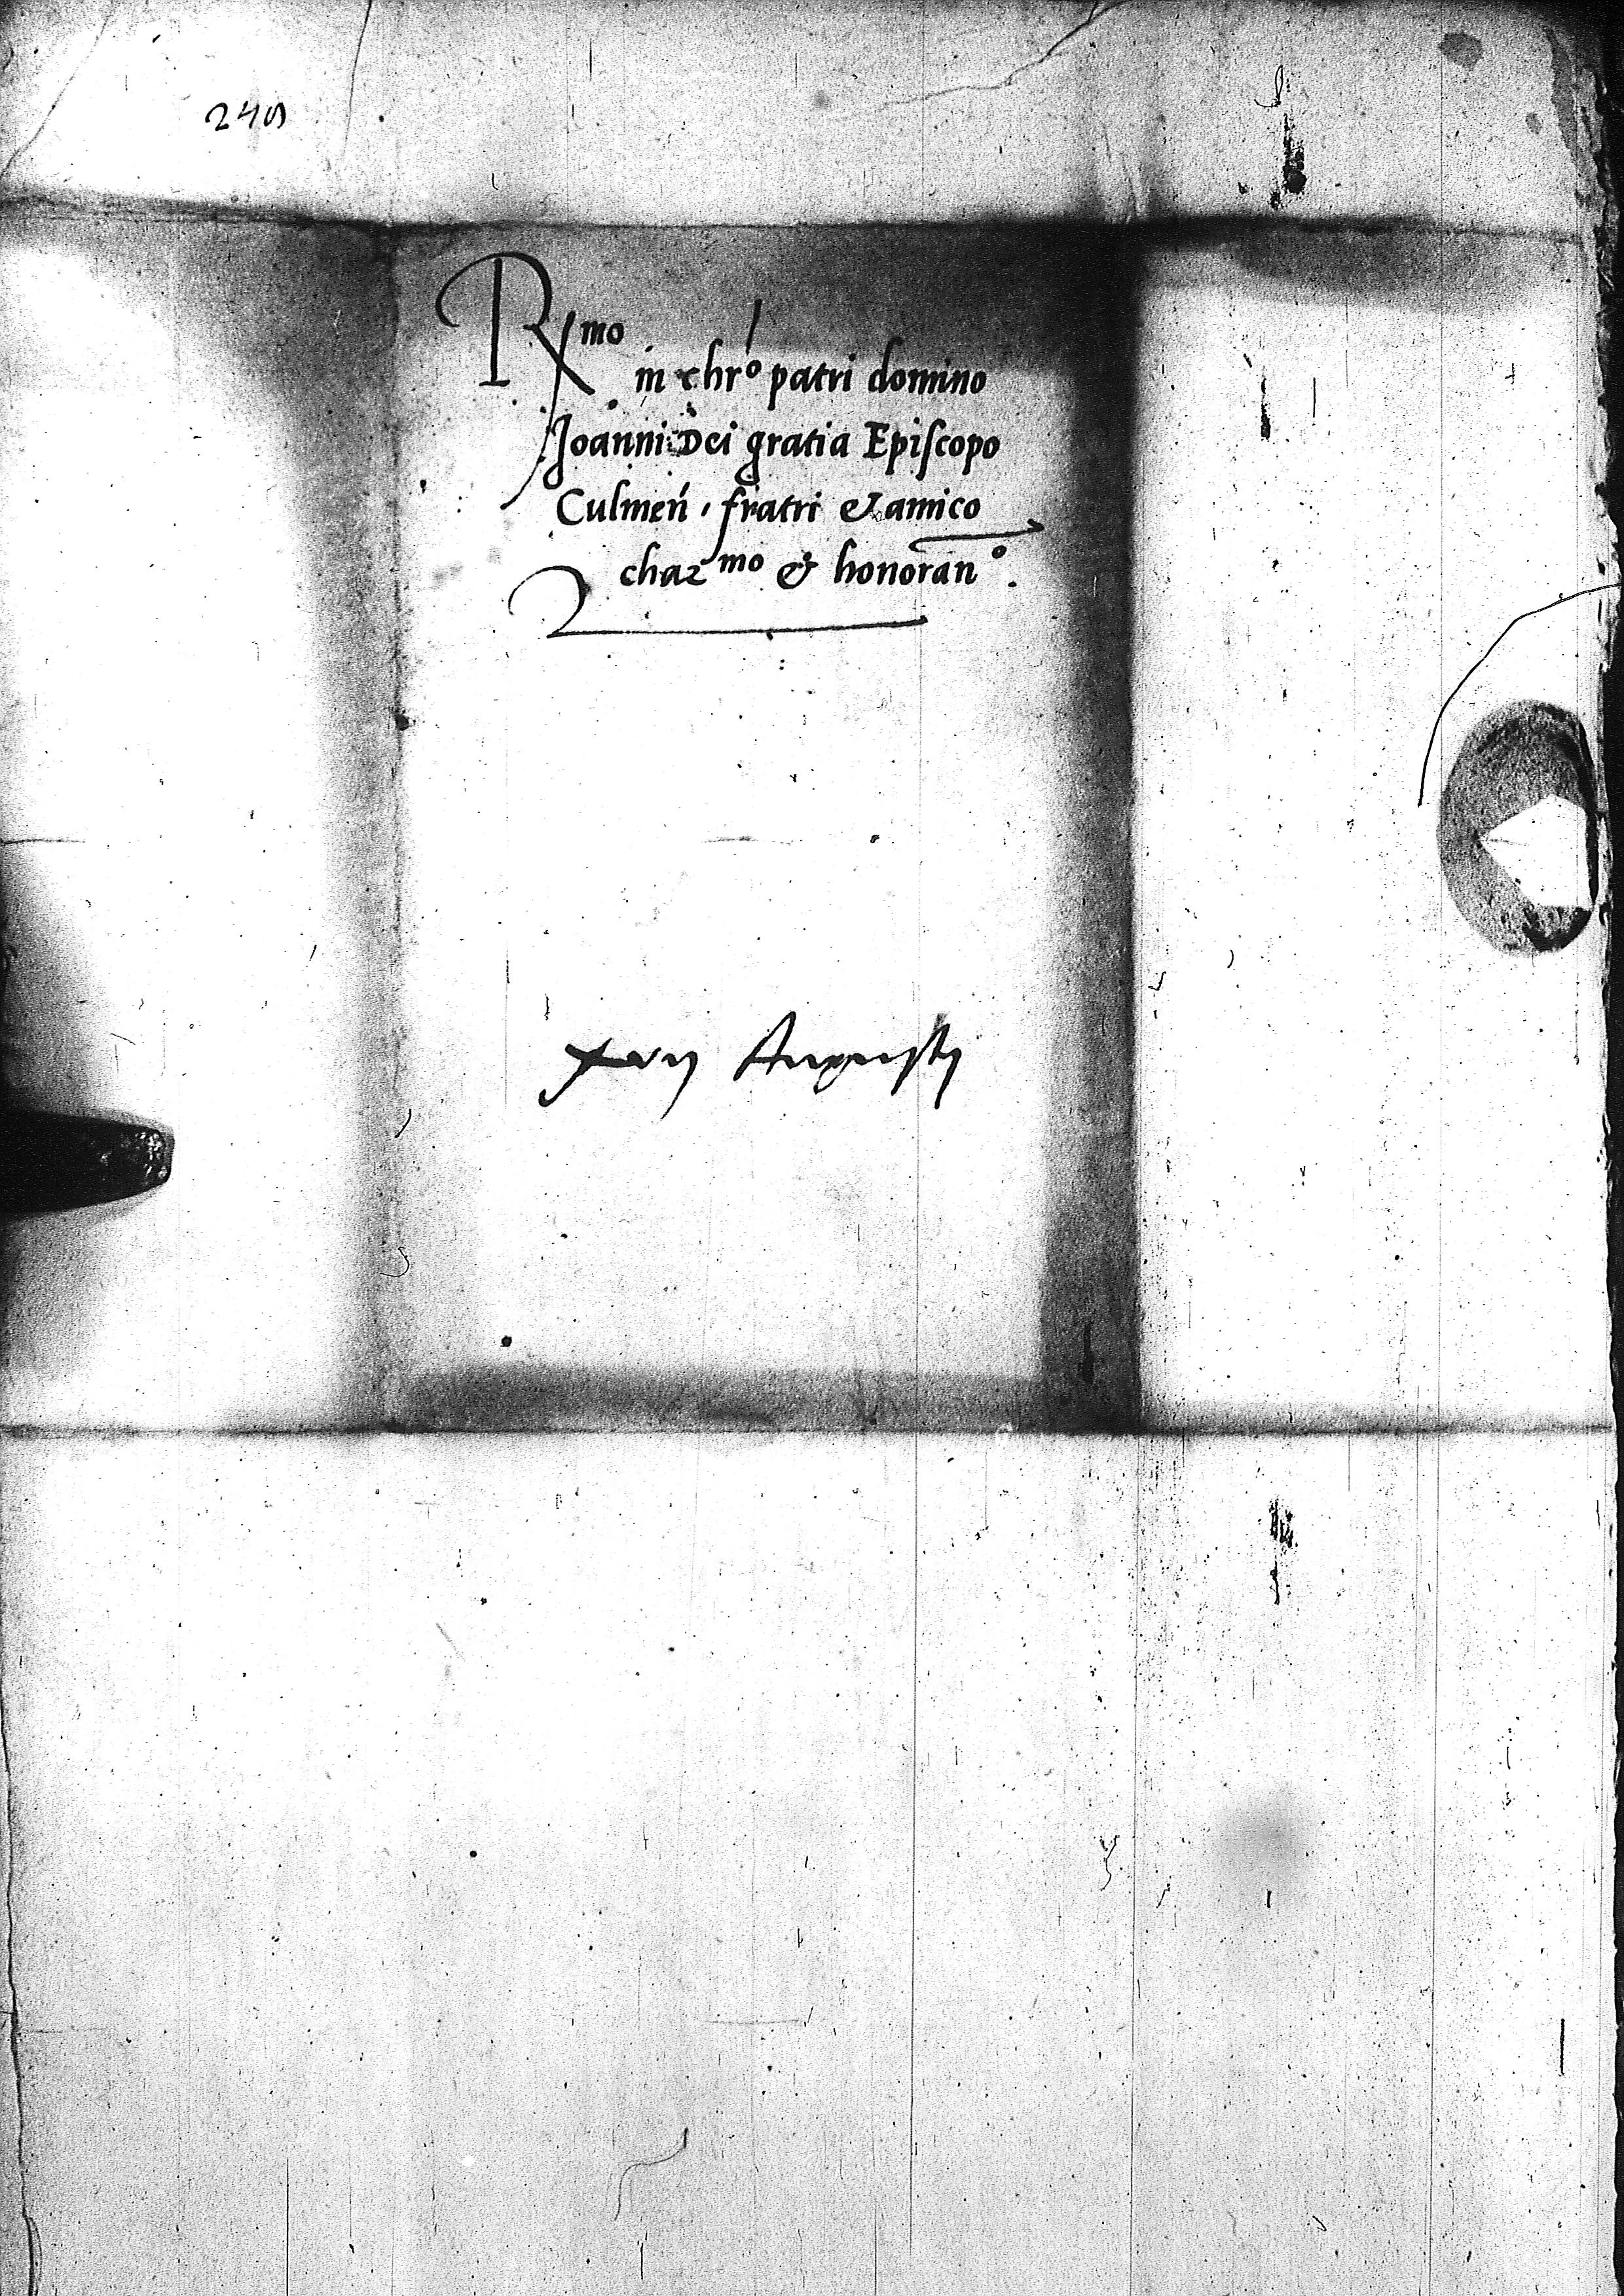 R mo
in chro patri domino
Joanni Dei gratia Episcopo
Culmeń . fratri & amico
char mo & honoran o.
xvij Augusti